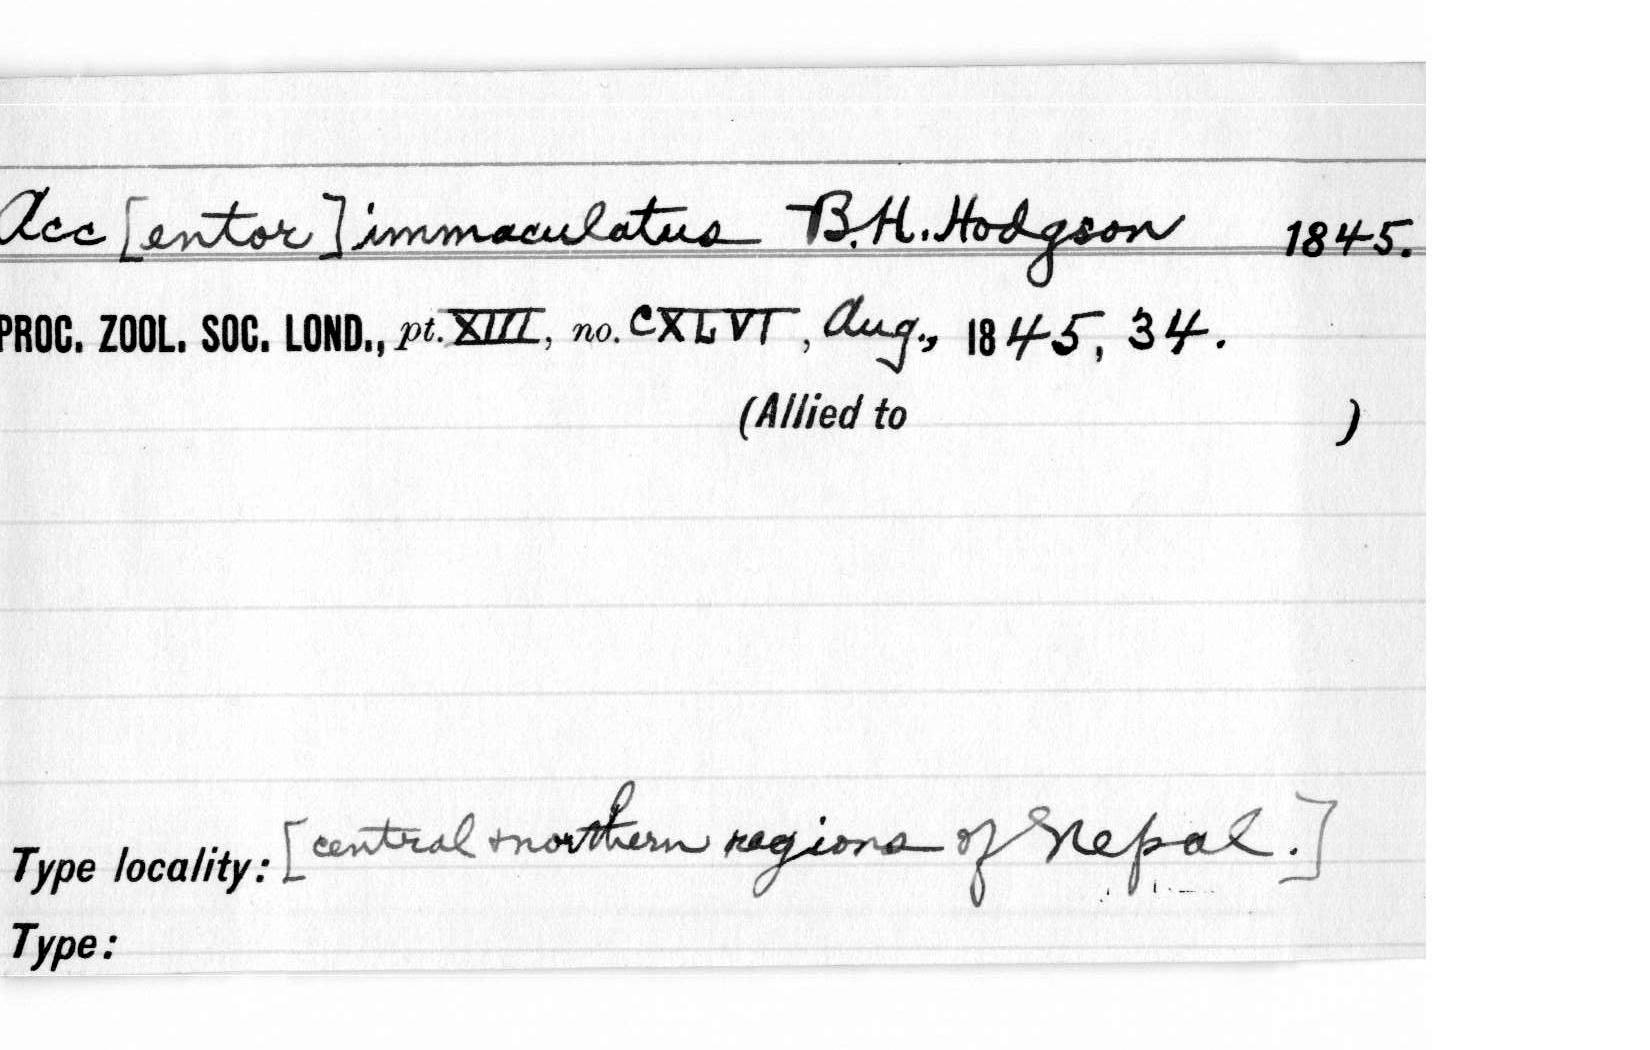 Acc[entor] immaculatus B.H. Hodgson 1845.
PROC. ZOOL. SOC. LOND., pt. XIII, no. CXLVI, Aug., 1845, 34.
(Allied to )
Type locality: [central + northern regions of Nepal.]
Type: